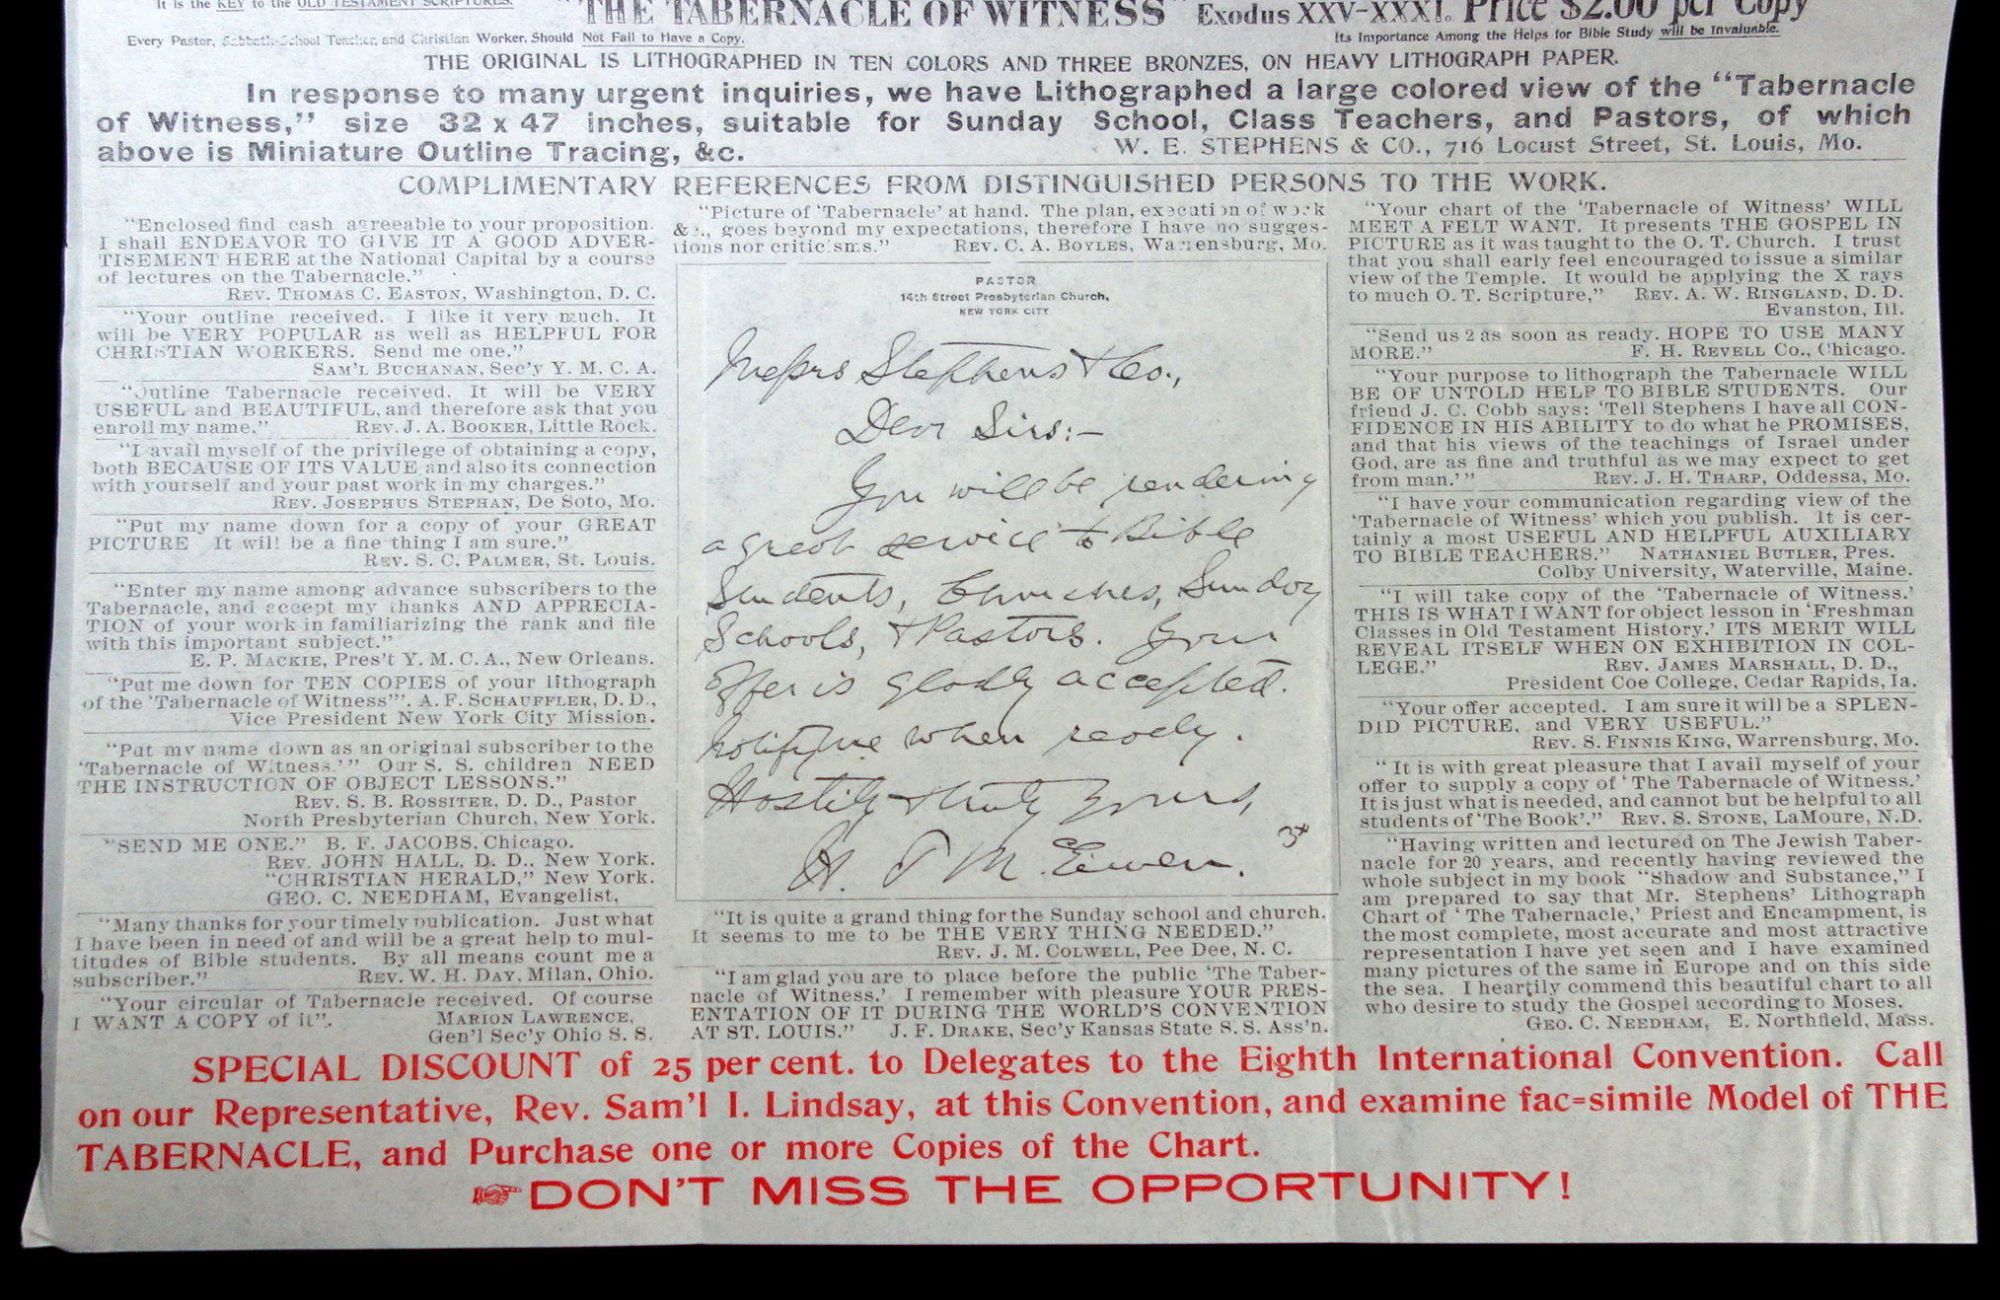 It is the KEY to the OLD TESTAMENT SCRIPTURES.
"THE TABERNACLE OF WITNESS" Exodus XXV-XXXI. Price $2.00 per Copy
Every Pastor, Sabbath-School Teacher, and Christian Worker, Should Not Fail to Have a Copy.
Its Importance Among the Helps for Bible Study will be Invaluable.
THE ORIGINAL IS LITHOGRAPHED IN TEN COLORS AND THREE BRONZES, ON HEAVY LITHOGRAPH PAPER.
In response to many urgent inquiries, we have Lithographed a large colored view of the "Tabernacle
of Witness," size 32 x 47 inches, suitable for Sunday School, Class Teachers, and Pastors, of which
above is Miniature Outline Tracing, &c.
W. E. STEPHENS & CO., 716 Locust Street, St. Louis, Mo.
COMPLIMENTARY REFERENCES FROM DISTINGUISHED PERSONS TO THE WORK.
"Enclosed find cash agreeable to your proposition.
I shall ENDEAVOR TO GIVE IT A GOOD ADVER-
TISEMENT HERE at the National Capital by a course
of lectures on the Tabernacle."
REV. THOMAS C. EASTON, Washington, D. C.
"Your outline received. I like it very much. It
will be VERY POPULAR as well as HELPFUL FOR
CHRISTIAN WORKERS. Send me one."
SAM'L BUCHANAN, Sec'y Y. M. C. A.
"Outline Tabernacle received. It will be VERY
USEFUL and BEAUTIFUL, and therefore ask that you
enroll my name." REV. J. A. BOOKER, Little Rock.
"I avail myself of the privilege of obtaining a copy,
both BECAUSE OF ITS VALUE and also its connection
with yourself and your past work in my charges."
REV. JOSEPHUS STEPHAN, De Soto, Mo.
"Put my name down for a copy of your GREAT
PICTURE It will be a fine thing I am sure."
REV. S. C. PALMER, St. Louis.
"Enter my name among advance subscribers to the
Tabernacle, and accept my thanks AND APPRECIA-
TION of your work in familiarizing the rank and file
with this important subject."
E. P. MACKIE, Pres't Y. M. C. A., New Orleans.
"Put me down for TEN COPIES of your lithograph
of the 'Tabernacle of Witness'". A. F. SCHAUFFLER, D. D.,
Vice President New York City Mission.
"Put my name down as an original subscriber to the
'Tabernacle of Witness.'" Our S. S. children NEED
THE INSTRUCTION OF OBJECT LESSONS."
REV. S. B. ROSSITER, D. D., Pastor
North Presbyterian Church, New York.
"SEND ME ONE." B. F. JACOBS, Chicago.
REV. JOHN HALL, D. D., New York.
"CHRISTIAN HERALD," New York.
GEO. C. NEEDHAM, Evangelist.
"Many thanks for your timely publication. Just what
I have been in need of and will be a great help to mul-
titudes of Bible students. By all means count me a
subscriber." REV. W. H. DAY, Milan, Ohio.
"Your circular of Tabernacle received. Of course
I WANT A COPY of it". MARION LAWRENCE,
Gen'l Sec'y Ohio S. S.
"Picture of 'Tabernacle' at hand. The plan, execution of work
&c., goes beyond my expectations, therefore I have no sugges-
tions nor criticisms." REV. C. A. BOYLES, Warrensburg, Mo.
PASTOR
14th Street Presbyterian Church,
NEW YORK CITY
Messrs Stephens & Co.,
Dear Sirs:-
You will be rendering
a great service to Bible
Students, Churches, Sunday
Schools, & Pastors. Your
offer is gladly accepted.
Notify me when ready.
truly yours,
"It is quite a grand thing for the Sunday school and church.
It seems to me to be THE VERY THING NEEDED."
REV. J. M. COLWELL, Pee Dee, N. C.
"I am glad you are to place before the public 'The Taber-
nacle of Witness.' I remember with pleasure YOUR PRES-
ENTATION OF IT DURING THE WORLD'S CONVENTION
AT ST. LOUIS." J. F. DRAKE, Sec'y Kansas State S. S. Ass'n.
"Your chart of the 'Tabernacle of Witness' WILL
MEET A FELT WANT. It presents THE GOSPEL IN
PICTURE as it was taught to the O. T. Church. I trust
that you shall early feel encouraged to issue a similar
view of the Temple. It would be applying the X rays
to much O. T. Scripture," REV. A. W. RINGLAND, D. D.
Evanston, Ill.
"Send us 2 as soon as ready. HOPE TO USE MANY
MORE." F. H. REVELL CO., Chicago.
"Your purpose to lithograph the Tabernacle WILL
BE OF UNTOLD HELP TO BIBLE STUDENTS. Our
friend J. C. Cobb says: 'Tell Stephens I have all CON-
FIDENCE IN HIS ABILITY to do what he PROMISES,
and that his views of the teachings of Israel under
God, are as fine and truthful as we may expect to get
from man.'" REV. J. H. THARP, Oddessa, Mo.
"I have your communication regarding view of the
'Tabernacle of Witness' which you publish. It is cer-
tainly a most USEFUL AND HELPFUL AUXILIARY
TO BIBLE TEACHERS." NATHANIEL BUTLER, Pres.
Colby University, Waterville, Maine.
"I will take copy of the 'Tabernacle of Witness.'
THIS IS WHAT I WANT for object lesson in 'Freshman
Classes in Old Testament History.' ITS MERIT WILL
REVEAL ITSELF WHEN ON EXHIBITION IN COL-
LEGE." REV. JAMES MARSHALL, D. D.,
President Coe College, Cedar Rapids, Ia.
"Your offer accepted. I am sure it will be a SPLEN-
DID PICTURE, and VERY USEFUL."
REV. S. FINNIS KING, Warrensburg, Mo.
"It is with great pleasure that I avail myself of your
offer to supply a copy of 'The Tabernacle of Witness.'
It is just what is needed, and cannot but be helpful to all
students of 'The Book'." REV. S. STONE, LaMoure, N.D.
"Having written and lectured on The Jewish Taber-
nacle for 20 years, and recently having reviewed the
whole subject in my book "Shadow and Substance," I
am prepared to say that Mr. Stephens' Lithograph
Chart of 'The Tabernacle,' Priest and Encampment, is
the most complete, most accurate and most attractive
representation I have yet seen and I have examined
many pictures of the same in Europe and on this side
the sea. I heartily commend this beautiful chart to all
who desire to study the Gospel according to Moses.
GEO. C. NEEDHAM, E. Northfield, Mass.
SPECIAL DISCOUNT of 25 per cent. to Delegates to the Eighth International Convention. Call
on our Representative, Rev. Sam'l I. Lindsay, at this Convention, and examine fac=simile Model of THE
TABERNACLE, and Purchase one or more Copies of the Chart.
☞DON'T MISS THE OPPORTUNITY!